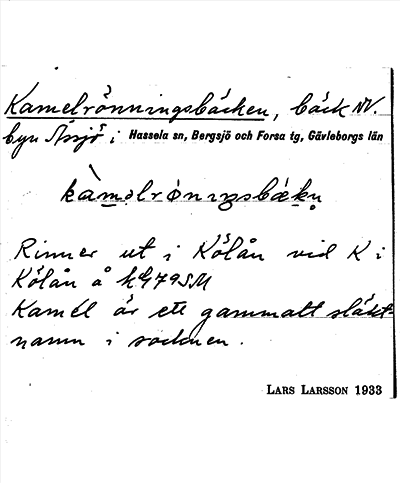 Kamelrönningsbäcken, bäck NV.
byn Assjö i Hassela sn, Bergsjö och Forsa tg, Gävleborgs län
Rinner ut i Kölån vid K i
Kölån å
Kamél är ett gammalt släkt-
namn i socknen.
LARS LARSSON 1933